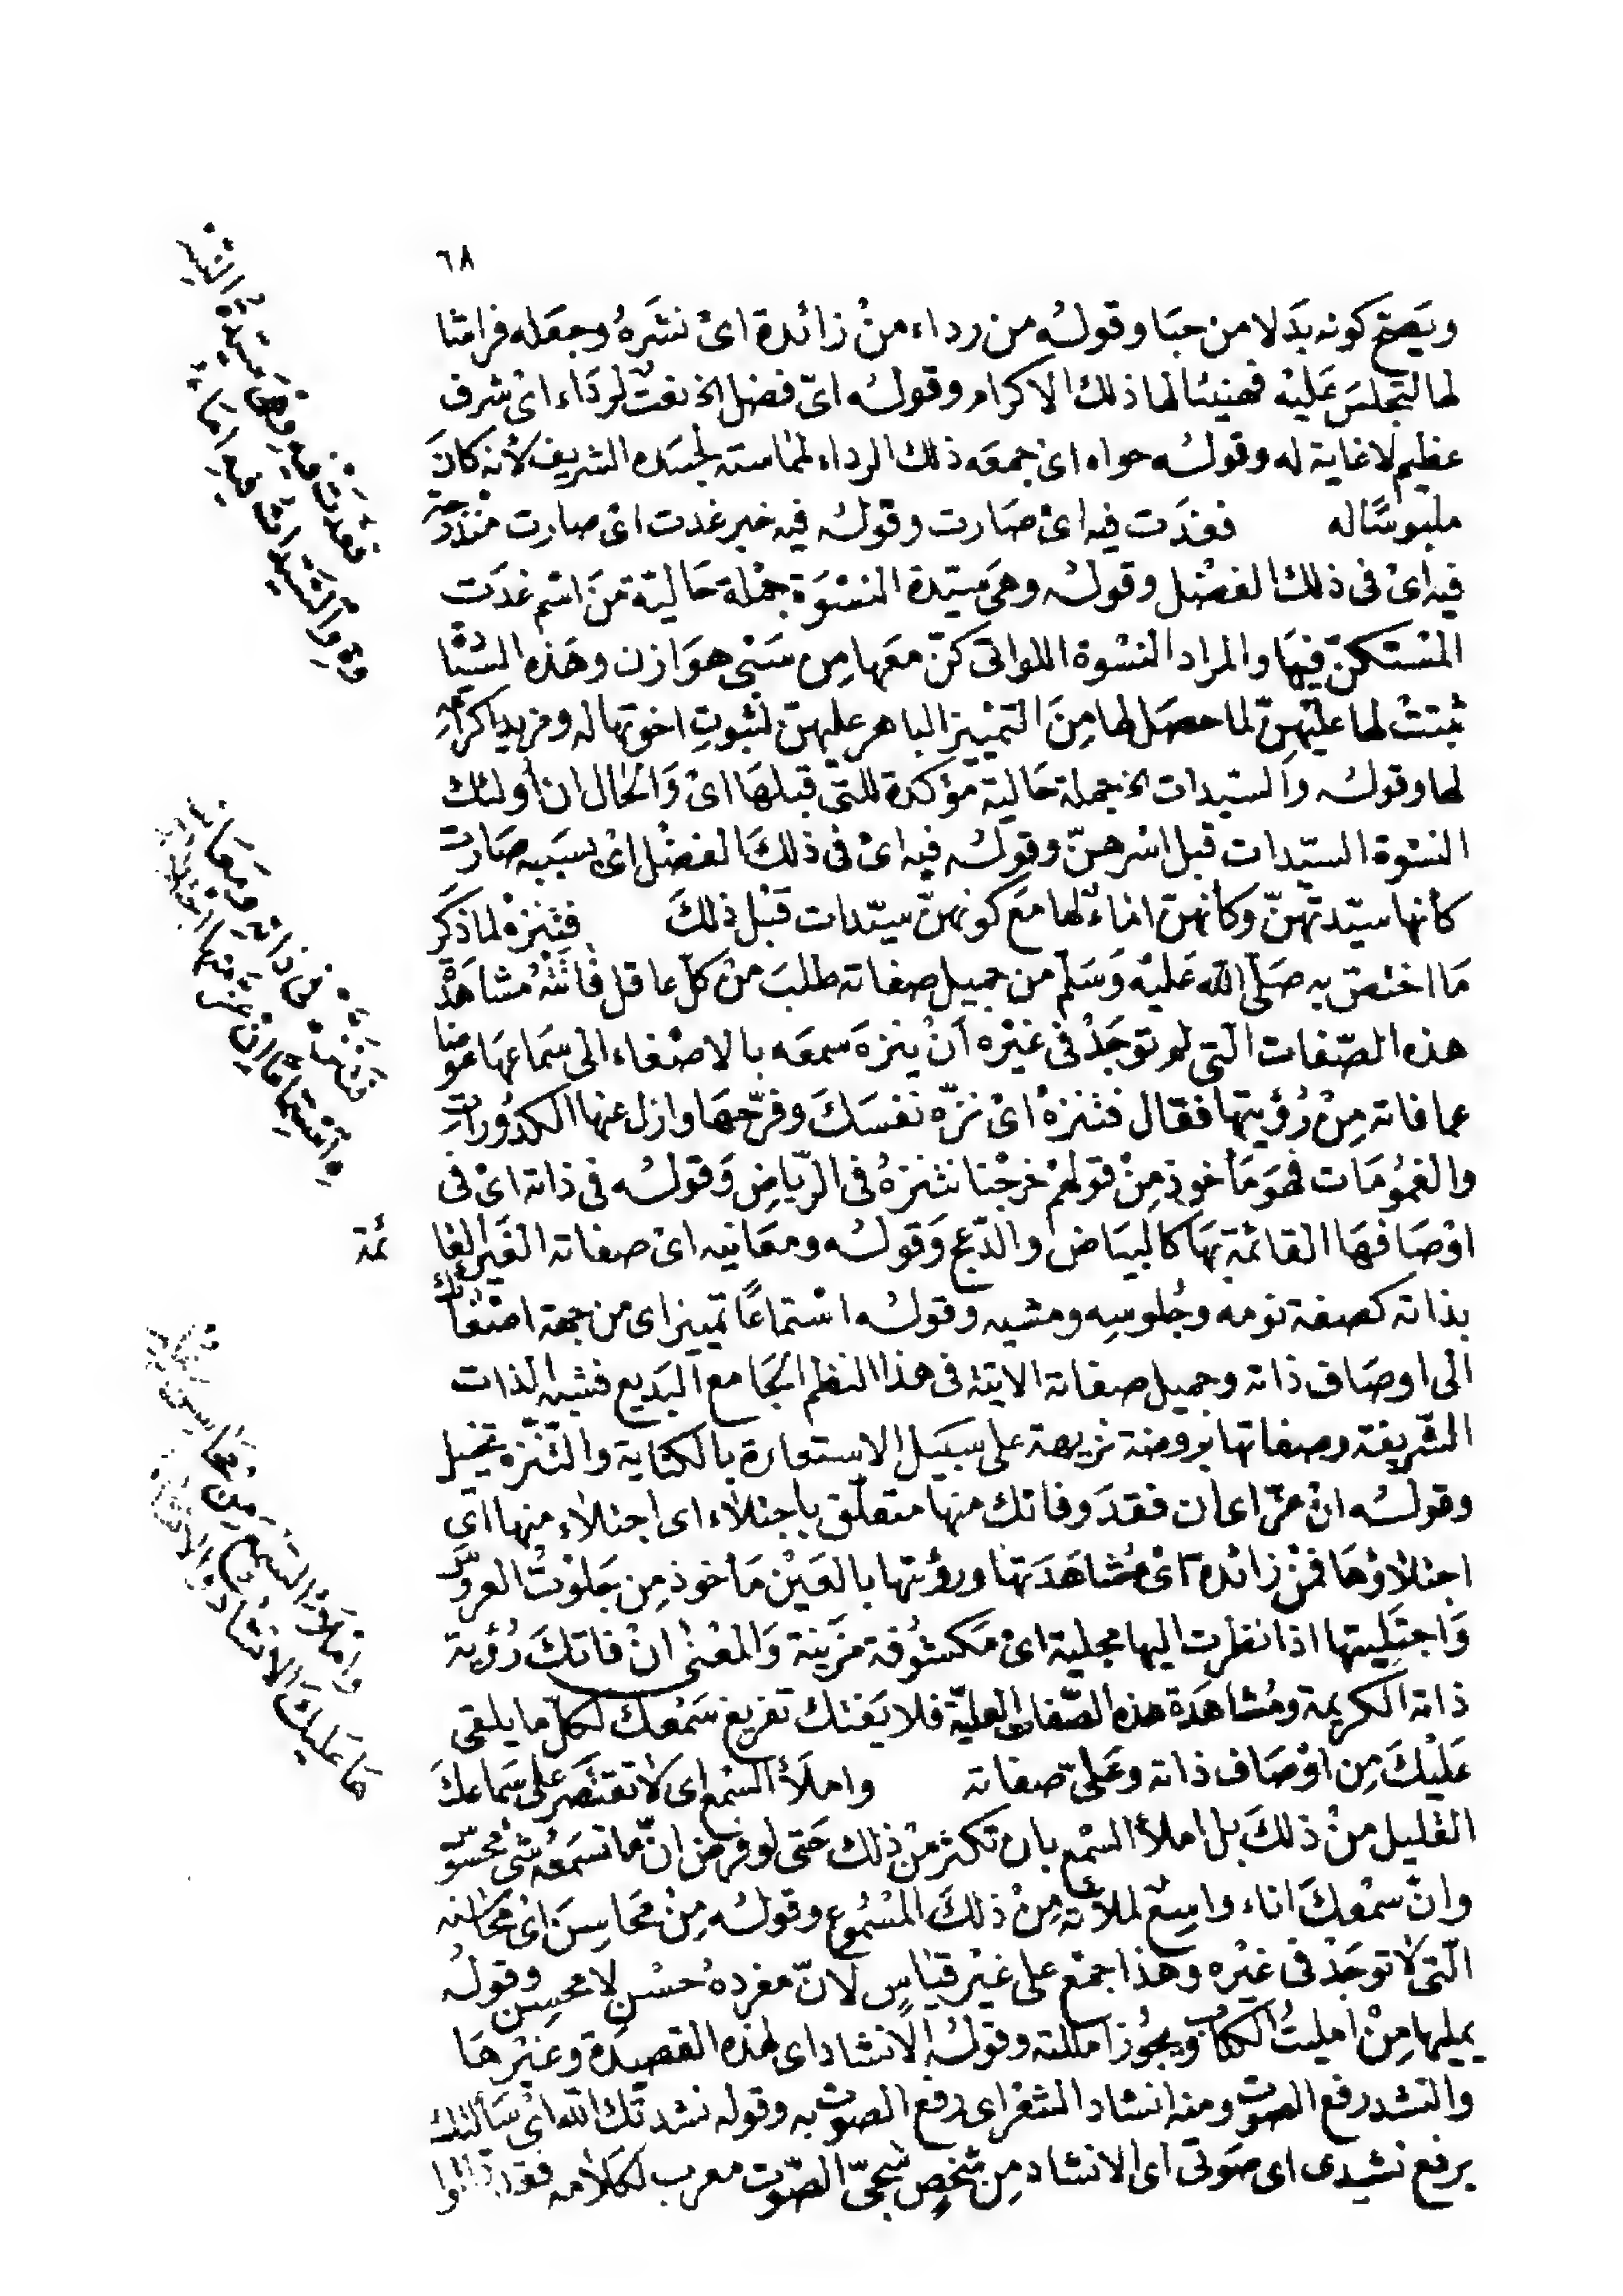 ٦٨
ويَصحّ كونه بَدَلا من حبَا وقولُه من رداء منْ زائدة اىْ نشَرهُ وجعَله فراشا
لها لتجلسَ عَليْه فهنيئا لها ذلك الاكرام وقولُه اىّ فضل الخ نعت لردَاء اىْ شرف
عظيم لاغاية له وقولُه حواه اىْ جمعَه ذلك الرداء لمماسته لجسَده الشريف لأنه كانَ
ملبوسًا له فغدَت فيه اىْ صَارت وقولُه فيه خبر غدت اىْ صارت مندرجة
فيه اىْ فى ذلك الفضْل وقولُه وهىَ سيّدة النسْوَة جمْلة حَالية منَ اسْم غدَت
المسْتكنّ فيهَا والمراد النسْوة اللواتى كنّ معَها مِن سَبْى هوَازن وهَذه السيَادة
ثبتتْ لها عليْهِنّ لما حصَل لها مِنَ التمْييز الباهر عليهنّ لثبوتِ اخوّتها له ومزيد اكرامه
لها وقولُه والسّيدات الخ جملة حَالية مؤكدة للتى قبلهَا اىْ وَالحال ان أولئك
النسْوة السيّدات قبل اسْرهنّ وقولُه فيه اىْ فى ذلكَ الفضْل اىْ بسَببه صَارت
كأنها سيّدتهنّ وكأنهنّ اماء لها مَع كونهنّ سيّدات قبْل ذلكَ فتنزهْ لما ذكَر
مَا اختصّ به صَلّى الله عَليْه وَسَلّم من جميل صفاته طلبَ منْ كلّ عاقل فاتتْهُ مُشاهَدة
هذه الصّفات التى لم توجَدْ فى غيْره أنْ ينزهَ سمعَه بالاصْغاء الى سَماعهَا عوضا
عما فاته مِنْ رُؤيتها فقال فتنزهْ اىْ نزّه نفسَكَ وفرّحهَا وازل عنها الكدُورات
والغمُومَات فهوَ مَأخوذ مِنْ قولهمْ خرجْنا نتنزهُ فى الرّياض وَقولُه فى ذاته اىْ فى
اوْصَافهَا القائمة بهَا كالبيَاض والدّعج وَقولُه ومعَانيه اىْ صفاته الغَير القا
ئمة
بذاته كصفة نومه وجُلوسِه ومشيه وقولُه اسْتماعًا تمييز اى من جهة اصْغائك
الى اوصَاف ذاته وجميل صفاته الاتية فى هذا النظم الجَامع البَديع فشبه الذات
الشّريفة وصفاتها بروضة نزيهة على سبيَل الاستعارة بالكناية والتّنزه تخييل
وقولُه انْ عزّ اى ان فقدَ وفاتك منها متعلّق باجتلاء اى اجتلاء منها اى
اجتلاؤهَا فمنْ زائدة اىْ مُشاهَدَتها ورؤيتها بالعَيْن مَأخوذ مِن جَلوْتُ العروس
وَاجتليتها اذا نظرت اليها مجلية اىْ مَكشوُفة مزَينة وَالمعْنى انْ فاتكَ رُؤية
ذاته الكريمة ومُشاهَدة هذه الصّفات العليّة فلا يَفتك تفريغ سَمْعك لكلّ ما يلقى
عَليْكَ مِن اوْصَاف ذاته وعَلىّ صفاته واملأ السّمع اى لا تقتصَر على سَماعكَ
القليل منْ ذلكَ بل املأ السّمع بان تكثر منْ ذلك حَتى لو فرض انّ ما تسمَعُه شىْ محسوس
وانّ سمْعكَ اناء واسِعْ لملأته مِنْ ذلكَ المسْمُوع وقولُه مِنْ مَحَاسِنَ اىْ مَحَاسنه
الّتى لا توجَدْ فى غيْره وهَذا جمْع على غيْر قيَاسٍ لانّ مفردهُ حُسْن لا محسِن وقولُه
يمليها مِنْ امليتُ الكتابَ ويجوُز امللته وقولُه الانشاد اى لهذه القصيدة وغيْرهَا
والنشد رفع الصوت ومنه انشاد الشعْر اى رفع الصوت به وقوله نشدتك الله اىْ سَألتك
برفع نشيدى اى صَوتى اى الانشاد مِن شخصٍ شجىّ الصّوت معرب لكلامه فقد قالوا
فغدَت فيه وهىَ سَيّدةُ النسْ
وَةِ والسّيّدات فيه امَاءُ
فتنزّهْ فى ذاته ومعَانيه
اسْتماعًا اِنْ عزّ منها اجتلاء
واملأ السّمع مِنْ محَاسِنَ يمْليـ
هَا عَليْكَ الانشاد والانشاء